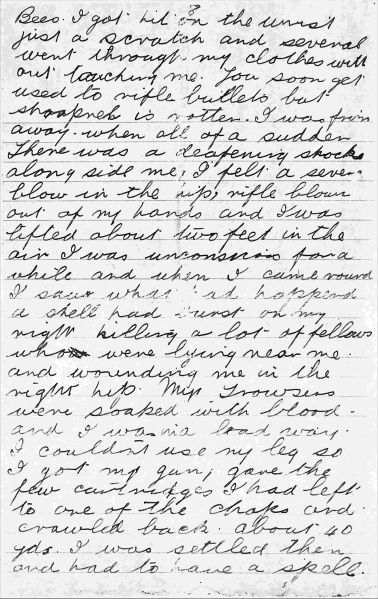 Bees. I got hit on the wrist
just a scratch and several
went through my clothes with
out touching me. You soon get
used to rifle bullets but
shrapnel is rotten. I was firin
away when all of a sudden
There was a deafening shock
along side me, I felt a sever
blow in the hip, rifle blown
out of my hands and I was
lifted about two feet in the
air I was unconscious for a
while and when I came round
I saw what had happend
a shell had burst on my
right killing a lot of fellows
who were lying near me.
and wounding me in the
right hip. My Trowsers
were soaked with blood.
and I was in a bad way.
I couldn't use my leg so
I got my gun, gave the
few cartridges I had left
to one of the chaps and
crawld back about 40
yds. I was settled then
and had to have a spell.